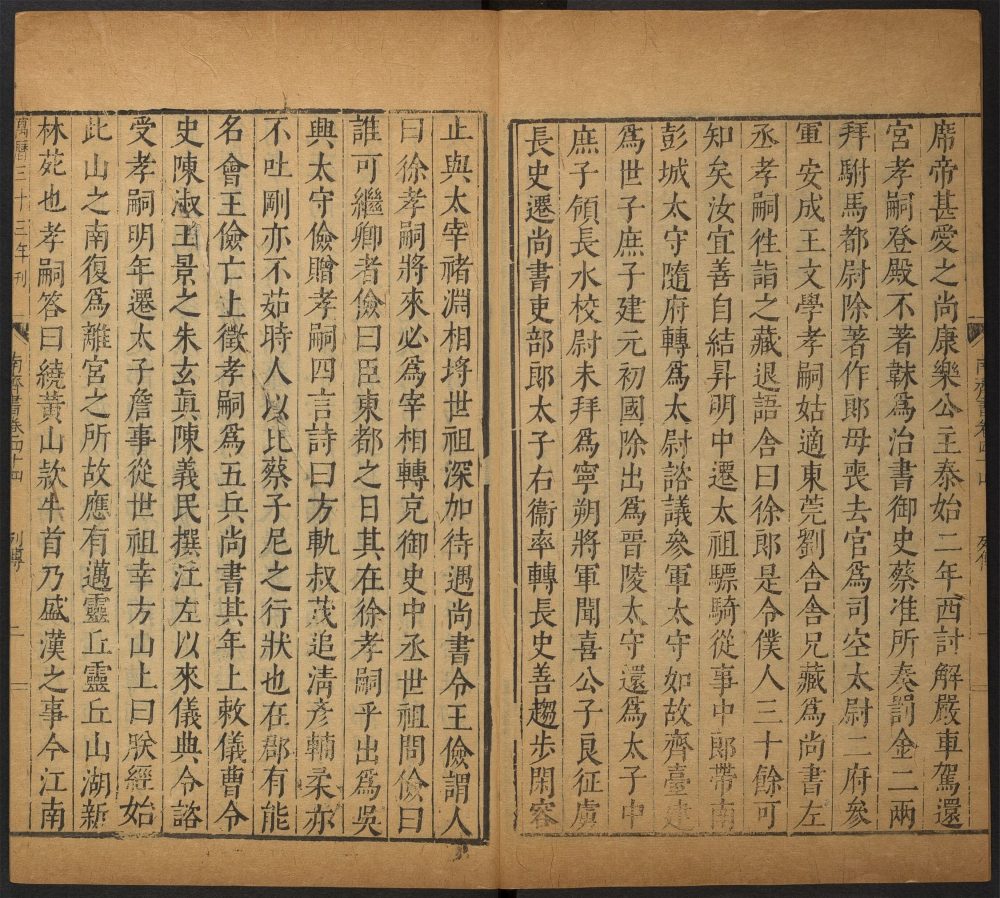 席帝甚愛之尚康樂公主泰始二年西討解嚴車駕還
宮孝嗣登殿不著韎爲治書御史蔡准所奏罰金二兩
拜駙馬都尉除著作郎母喪去官爲司空太尉二府參
軍安成王文學孝嗣姑適東莞劉舍舍兄藏爲尚書左
丞孝嗣徃詣之藏退語舍曰徐郎是令僕人三十餘可
知矣汝宜善自結昇明中遷太祖驃騎從事中郎帶南
彭城太守隨府轉爲太尉諮議參軍太守如故齊臺建
爲世子庶子建元初國除出爲晉陵太守還爲太子中
庶子領長水校尉未拜爲寧朔將軍聞喜公子良征虜
長史遷尚書吏部郎太子右衞率轉長史善趨步閑容
止與太宰禇淵相埒世祖深加待遇尚書令王儉謂人
曰徐孝嗣將來必爲宰相轉充御史中丞世祖問儉曰
誰可繼卿者儉曰臣東都之日其在徐孝嗣乎出爲吳
興太守儉贈孝嗣四言詩曰方軌叔茂追清彥輔柔亦
不吐剛亦不茹時人以比蔡子尼之行狀也在郡有能
名會王儉亡上徵孝嗣爲五兵尚書其年上敕儀曹令
史陳淑王景之朱玄眞陳義民撰江左以來儀典令諮
受孝嗣明年遷太子詹事從世祖幸方山上曰朕經始
此山之南復爲離宮之所故應有邁靈丘靈丘山湖新
林苑也孝嗣答曰繞黃山款牛首乃盛漢之事今江南
萬曆三十三年刊
南齊書卷四十四 列傳 二